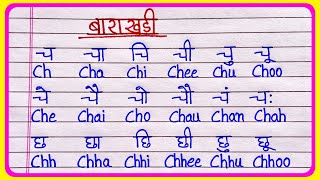 बाराखडी
च चा चि ची चु चू
Ch Cha Chi Chee Chu Choo
चे चै चो चौ चं चः
Che Chai Cho Chau Chan Chah
छ छा छि छी छु छू
Chh Chha Chhi Chhee Chhu Chhoo